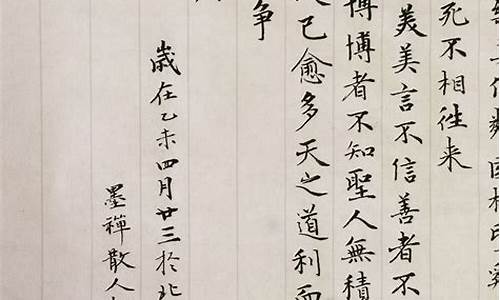 俗鄰国相望雞
死不相往来
美美言不信善者不
博博者不知聖人無積
己愈多天之道利而
争
歲在乙未四月廿三於北
墨禪散人